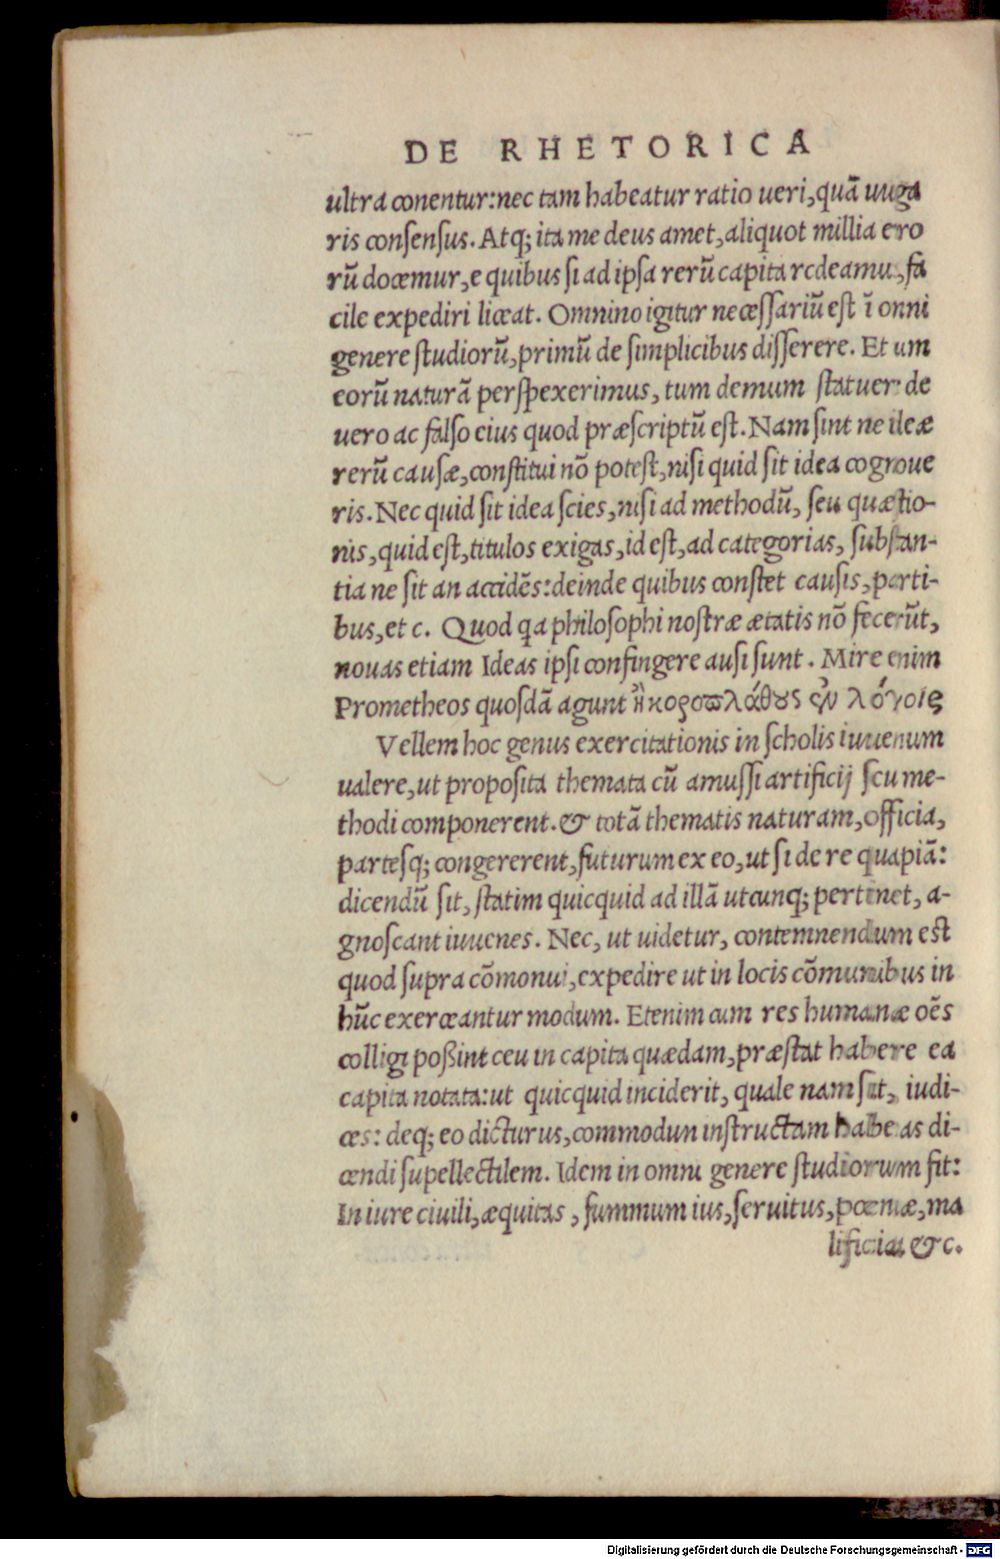 DE RHETORICA
ultra conentur: nec tam habeatur ratio ueri, quā uulga
ris consensus. Atq; ita me deus amet, aliquot millia erro
rū docemur, e quibus si ad ipsa rerū capita redeamus, fa
cile expediri liceat. Omnino igitur necessariū est ī omni
genere studiorū, primū de simplicibus disserere. Et cum
eorū naturā perspexerimus, tum demum statuere de
uero ac falso eius quod præscriptū est. Nam sint ne ideæ
rerū causæ, constitui nō potest, nisi quid sit idea cognoue
ris. Nec quid sit idea scies, nisi ad methodū, seu quæstio-
nis, quid est, titulos exigas, id est, ad categorias, substan-
tia ne sit an accidēs: deinde quibus constet causis, parti-
bus, et c. Quod qa philosophi nostræ ætatis nō fecerūt,
nouas etiam Ideas ipsi confingere ausi sunt. Mire enim
Prometheos quosdā agunt ἢ κοροπλάθους ἐν λόγοις
Vellem hoc genus exercitationis in scholis iuuenum
ualere, ut proposita themata cū amussi artificij seu me-
thodi componerent. & totā thematis naturam, officia,
partesq; congererent, futurum ex eo, ut si de re quapiā:
dicendū sit, statim quicquid ad illā utcunq; pertinet, a-
gnoscant iuuenes. Nec, ut uidetur, contemnendum est
quod supra cōmonui, expedire ut in locis cōmunibus in
hūc exerceantur modum. Etenim cum res humanæ oēs
colligi possint ceu in capita quædam, præstat habere ea
capita notata: ut quicquid inciderit, quale nam sit, iudi-
ces: deq; eo dicturus, commodum instructam habeas di-
cendi supellectilem. Idem in omni genere studiorum fit:
In iure ciuili, æquitas, summum ius, seruitus, poenæ, ma
lificia, & c.
Digitalisierung gefördert durch die Deutsche Forschungsgemeinschaft - DFG